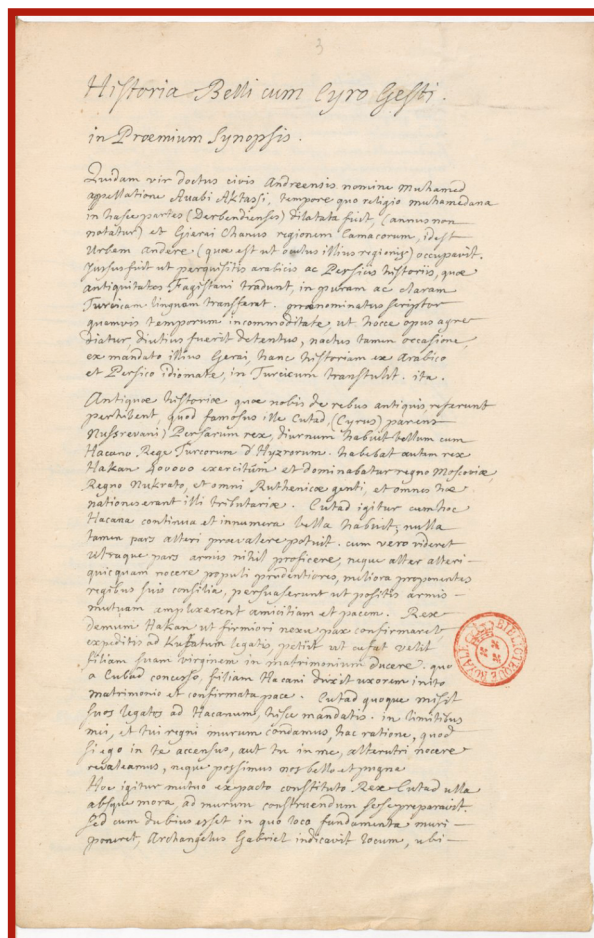 3
Historia Belli cum Cyro Gesti.
in Proemium Synopsis.
Quidam vir doctus civis Andreensis nomine Muhamed
appellatione Avabi Aktassi, tempore quo religio muhamedana
in hasce partes (Derbendienses) dilatata fuit, (annus non
notatur) et Gierai Chanus regionem Camacorum, idest
Urbem Andere (quae est ut oculus illius regionis) occupavit.
Jussus fuit ut perquisitis arabicis ac Persicis historiis, quae
antiquitates Fagistani tradunt, in puram ac claram
Turcicam linguam transferat. praenominatus scriptor
quamvis temporum incommoditate, ut hocce opus agre
diatur, diutius fuerit detentus, nactus tamen occasione,
ex mandato illius Gerai, hanc historiam ex Arabico
et Persico idiomate, in Turcicum transtulit. ita.
Antiquae historiae quae nobis de rebus antiquis referunt
perhibent, quod famosus ille Cutad, (Cyrus) parens
Nussrevani) Persarum rex, diurnum habuit bellum cum
Hacano Rege Turcorum d'Hyzrorum. habebat autem rex
Hakan exercitum et dominabatur regno Moscoviae,
Regno Nukrato, et omni Ruthenicae genti, et omnes hae
nationes erant illi tributariae. Cutad igitur cum hoc
Hacana continua et innumera bella habuit, nulla
tamen pars alteri praevalere potuit. cum vero videret
Utraque pars armis nihil proficere, neque alter alteri-
quicquam nocere populi prudentiores, meliora proponentes
regibus suis consilia, persuaserunt ut positis armis-
mutuam amplexarent amicitiam et pacem. Rex
demum Hakan ut firmiori nexu pax confirmaret
expeditis ad Kubatum legatis, petiit ut velit
filiam suam virginem in matrimonium ducere. quo
a Cutad concesso, filiam Hacani duxit uxorem inito
matrimonio et confirmata pace. Cutad quoque misit
suos legatos ad Hacanum, hisce mandatis. in limitibus
mei, et tui regni murum condamus, hac ratione, quod
si ego in te accensus, aut tu in me, alterutri nocere
nequè possimus nos bello et pugna
Hoc igitur mutuo ex pacto constituto Rex Cutad ulla
absque mora, ad murum construendum sese praeparavit.
Sed cum dubius esset in quo loco fundamenta muri-
poneret, Archangelus Gabriel indicavit locum, ubi-
BIBLIOTHEQUE ROYALE